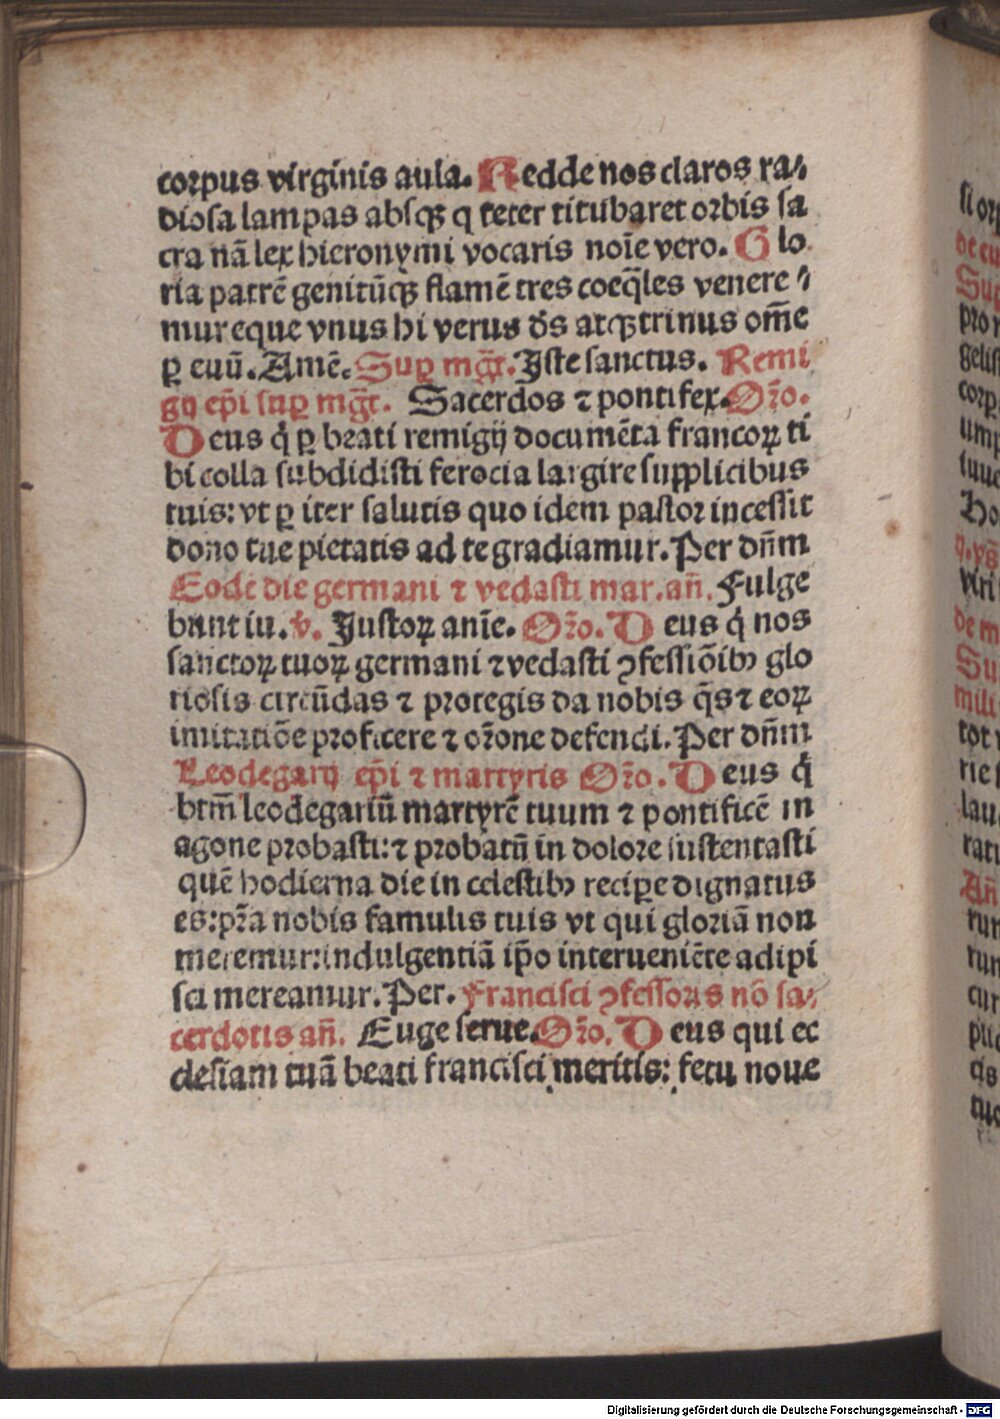 corpus virginis aula. Redde nos claros ra⸗
diosa lampas absqꝫ q teter titubaret orbis sa
cra nā lex hieronymi vocaris noīe vero. Glo
ria patrē genitūqꝫ flamē tres coeq̄les venere⸗
mur eque vnus hi verus d̄s atqꝫ trinus om̄e
ꝑ euū. Amē. Suꝑ mg̅t. Iste sanctus. Remi
gij ep̄i suꝑ mg̅t. Sacerdos ⁊ pontifex. Or̄o.
Deus q̇ ꝑ beati remigij documēta francoꝝ ti
bi colla subdidisti ferocia largire supplicibus
tuis: vt ꝑ iter salutis quo idem pastor incessit
dono tue pietatis ad te gradiamur. Per dn̄m
Eodē die germani ⁊ vedasti mar. an̄. Fulge
bunt iu. v̄. Iustoꝝ anīe. Or̄o. Deus q̇ nos
sanctoꝝ tuoꝝ germani ⁊ vedasti ꝯfessiōibꝫ glo
riosis circūdas ⁊ protegis da nobis q̄s ⁊ eoꝝ
imitatiōe proficere ⁊ or̄one defendi. Per dn̄m
Leodegarij ep̄i ⁊ martyris Or̄o. Deus q̇
btm̄ leodegariū martyrē tuum ⁊ pontificē in
agone probasti: ⁊ probatū in dolore sustentasti
quē hodierna die in celestibꝫ reciꝑe dignatus
es: pr̄a nobis famulis tuis vt qui gloriā non
meremur: indulgentiā ip̄o interueniēte adipi
sci mereamur. Per. Francisci ꝯfessoris nō sa⸗
cerdotis an̄. Euge serue. Or̄o. Deus qui ec
clesiam tuā beati francisci meritis: fetu noue
Digitalisierung gefördert durch die Deutsche Forschungsgemeinschaft - DFG